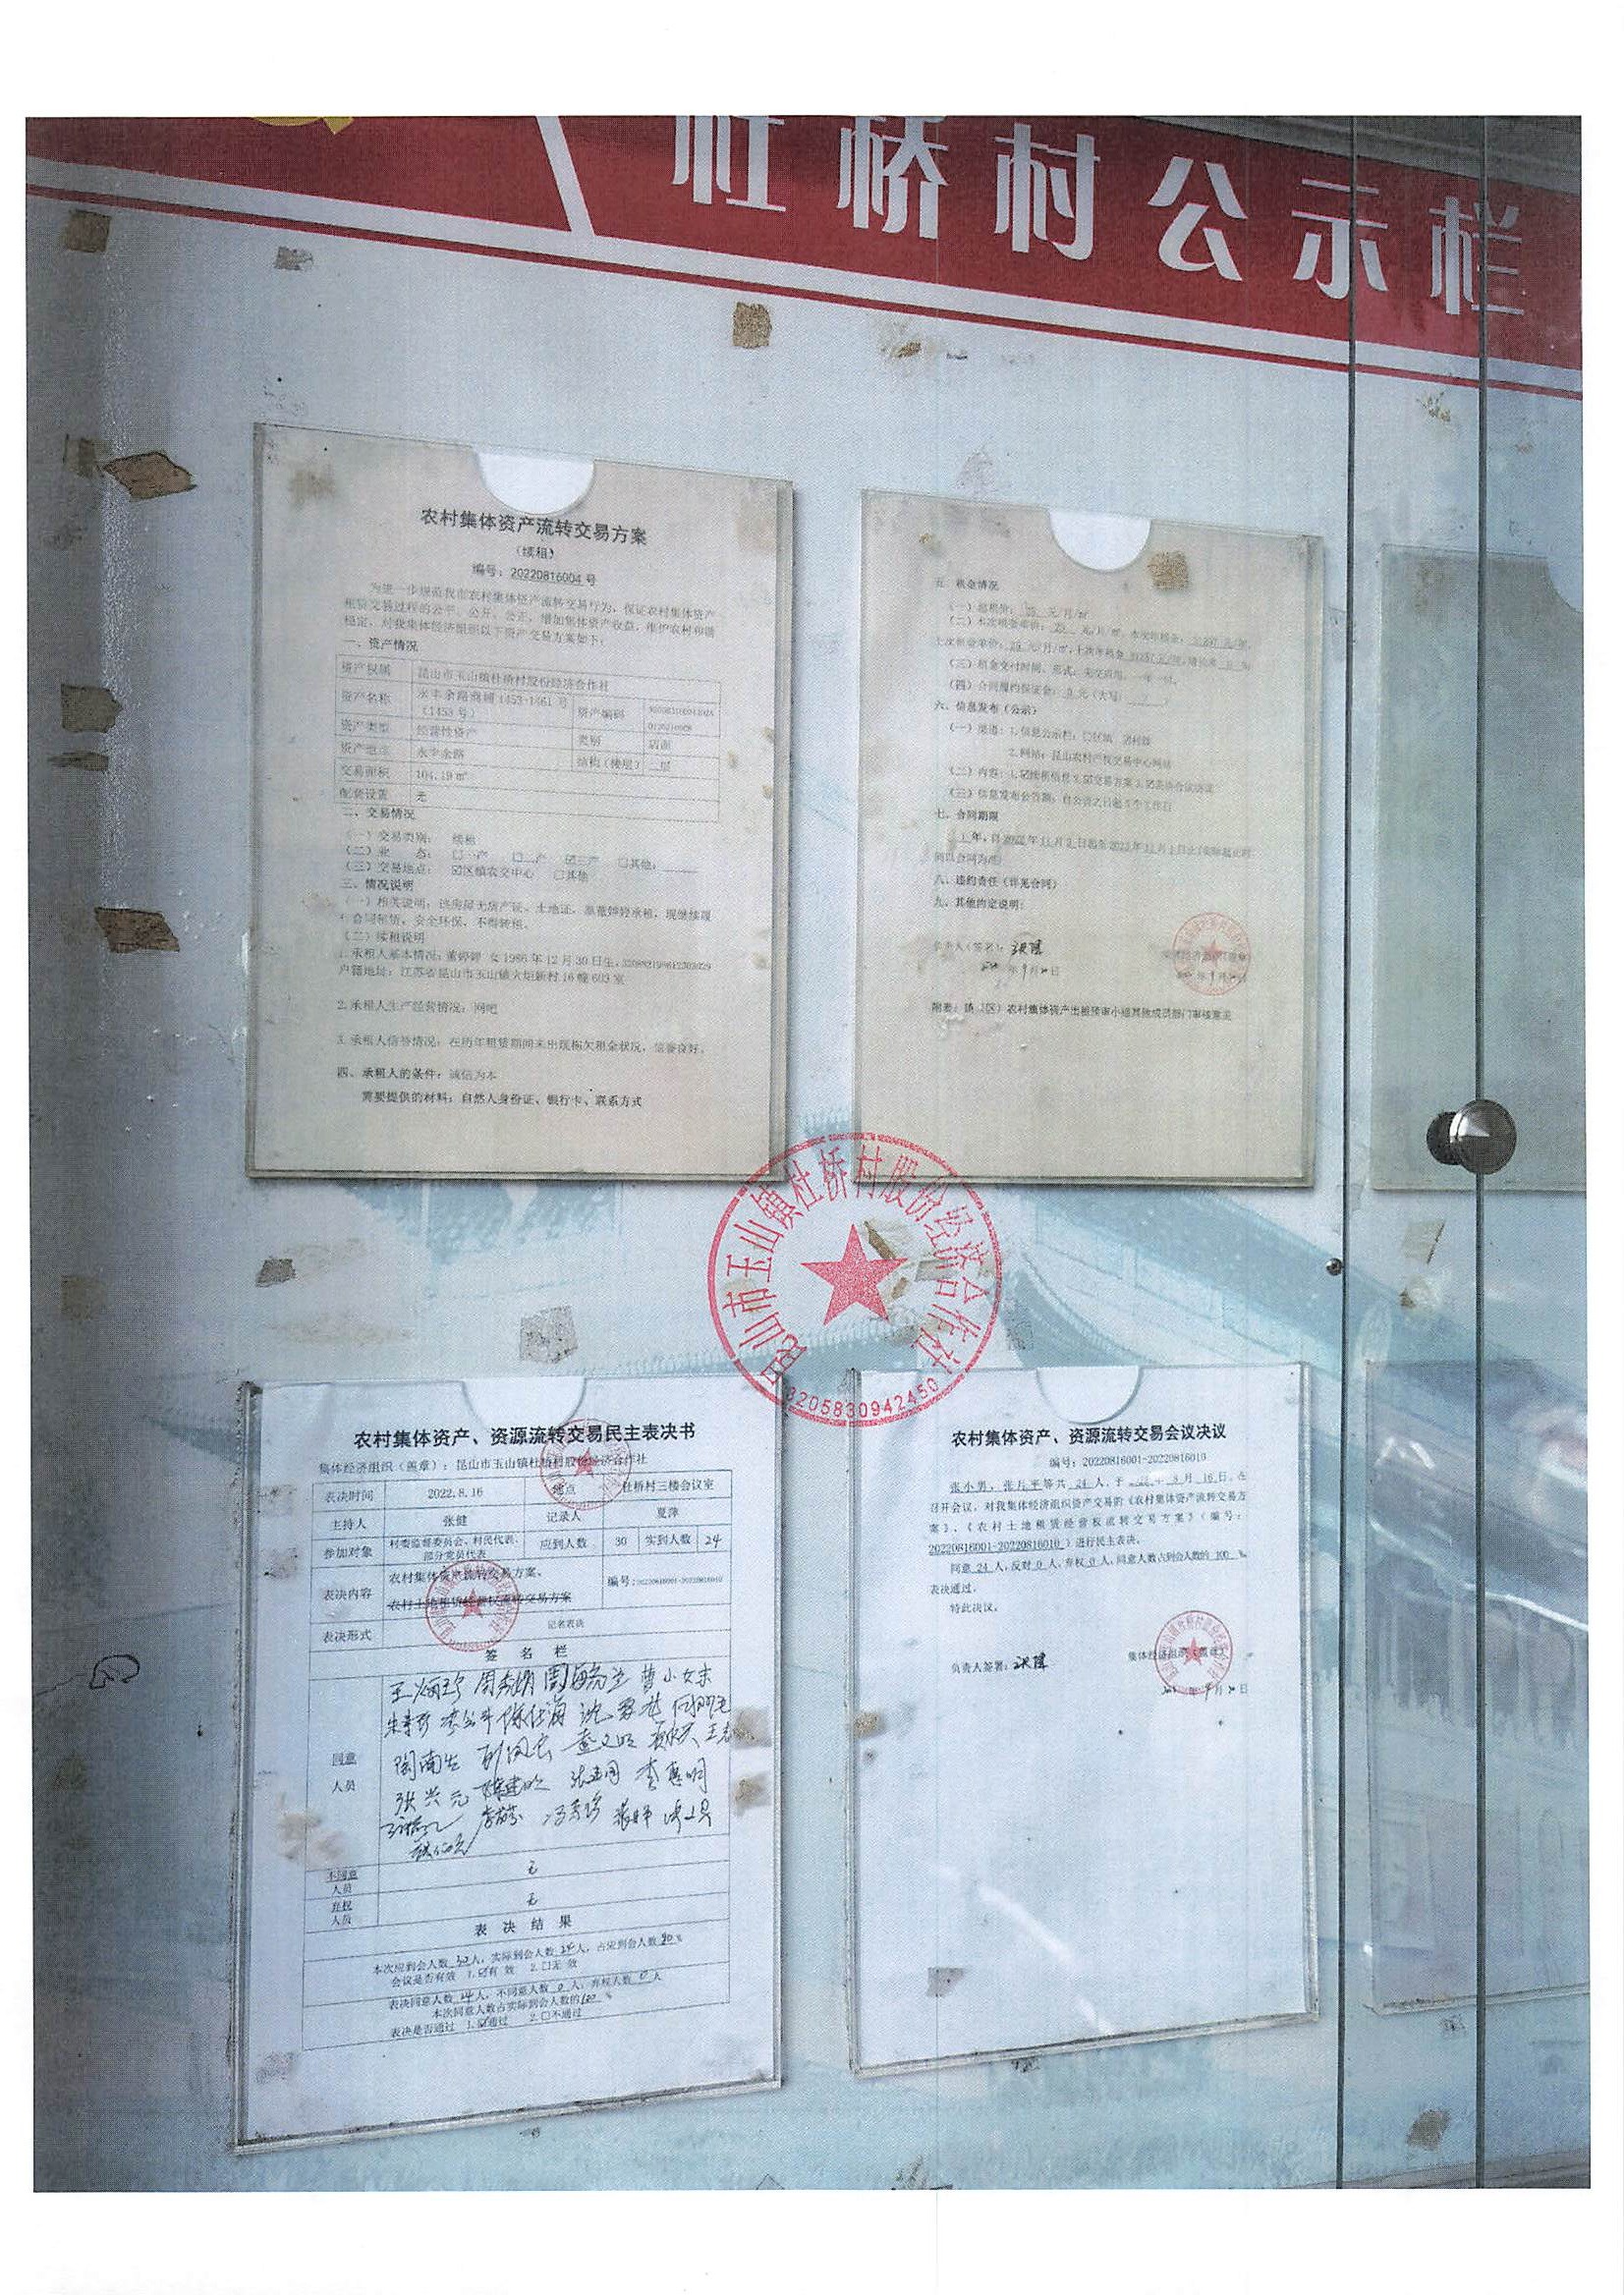 杜桥村公示栏
农村集体资产流转交易方案
(续租)
编号:20220816004号
为进一步规范我市农村集体资产流转交易行为,保证农村集体资产
租赁交易过程的公平、公开、公正,增加集体资产收益,维护农村和谐
稳定,对我集体经济组织以下资产交易方案如下:
一、资产情况
资产权属 昆山市玉山镇杜桥村股份经济合作社
资产名称 永丰余路商铺1453-1461号
(1453号) 资产编码
资产类型 经营性资产 类别 店面
资产地点 永丰余路 结构(楼层) 层
交易面积 104.19㎡
配套设备 无
二、交易情况
(一)交易类别: 续租
(二)业 态: □一产 □二产 ☑三产 □其他:
(三)交易地点: ☑区镇农交中心 □其他
三、情况说明
(一)相关说明:该房屋无房产证、土地证,
合同租赁,安全环保,不得转租。
(二)续租说明
1.承租人基本情况:董婷婷 女 1986年12月30日生,
户籍地址:江苏省昆山市玉山镇火炬新村16幢603室
2.承租人生产经营情况:网吧
3.承租人信誉情况:在历年租赁期间未出现拖欠租金状况,信誉良好。
四、承租人的条件:诚信为本
需要提供的材料:自然人身份证、银行卡、联系方式
五、租金情况
(三)租金交付时间、形式:先交后用,一年一付。
(四)合同履约保证金:0元(大写: )
六、信息发布(公示)
(一)渠道:1.信息公示栏:□区镇 ☑村级
2.网站:昆山农村产权交易中心网站
(三)信息发布公告期:自公告之日起5个工作日
七、合同期限
八、违约责任(详见合同)
九、其他约定说明:
负责人(签名):张健
年9月20日
附表:镇(区)农村集体资产出租预审小组其他成员部门审核意见
昆山市玉山镇杜桥村股份经济合作社
3205830942450
农村集体资产、资源流转交易民主表决书
集体经济组织(盖章):昆山市玉山镇杜桥村股份经济合作社
表决时间 2022.8.16 地点 杜桥村三楼会议室
主持人 张健 记录人 夏萍
参加对象 村委监督委员会、村民代表、
部分党员代表 应到人数 30 实到人数 24
表决内容 农村集体资产流转交易方案、
农村土地租赁经营权流转交易方案 编号:20220816001-20220816010
表决形式 记名表决
签名栏
同意
人员
张兴元
不同意
人员 无
弃权
人员 无
表决结果
本次应到会人数30人,实际到会人数24人,占应到会人数80%
会议是否有效 1.☑有效 2.□无效
表决同意人数24人,不同意人数0人,弃权人数0人
本次同意人数占实际到会人数的100%
表决是否通过 1.☑通过 2.□不通过
农村集体资产、资源流转交易会议决议
编号:20220816001-20220816010
张小男,张月平等共24人,于2022年8月16日,在
召开会议,对我集体经济组织资产交易的《农村集体资产流转交易方
案》、《农村土地租赁经营权流转交易方案》(编号:
20220816001-20220816010)进行民主表决。
同意24人,反对0人,弃权0人,同意人数占到会人数的100%,
表决通过。
特此决议。
负责人签署:张健 集体经济组织(盖章)
年9月20日